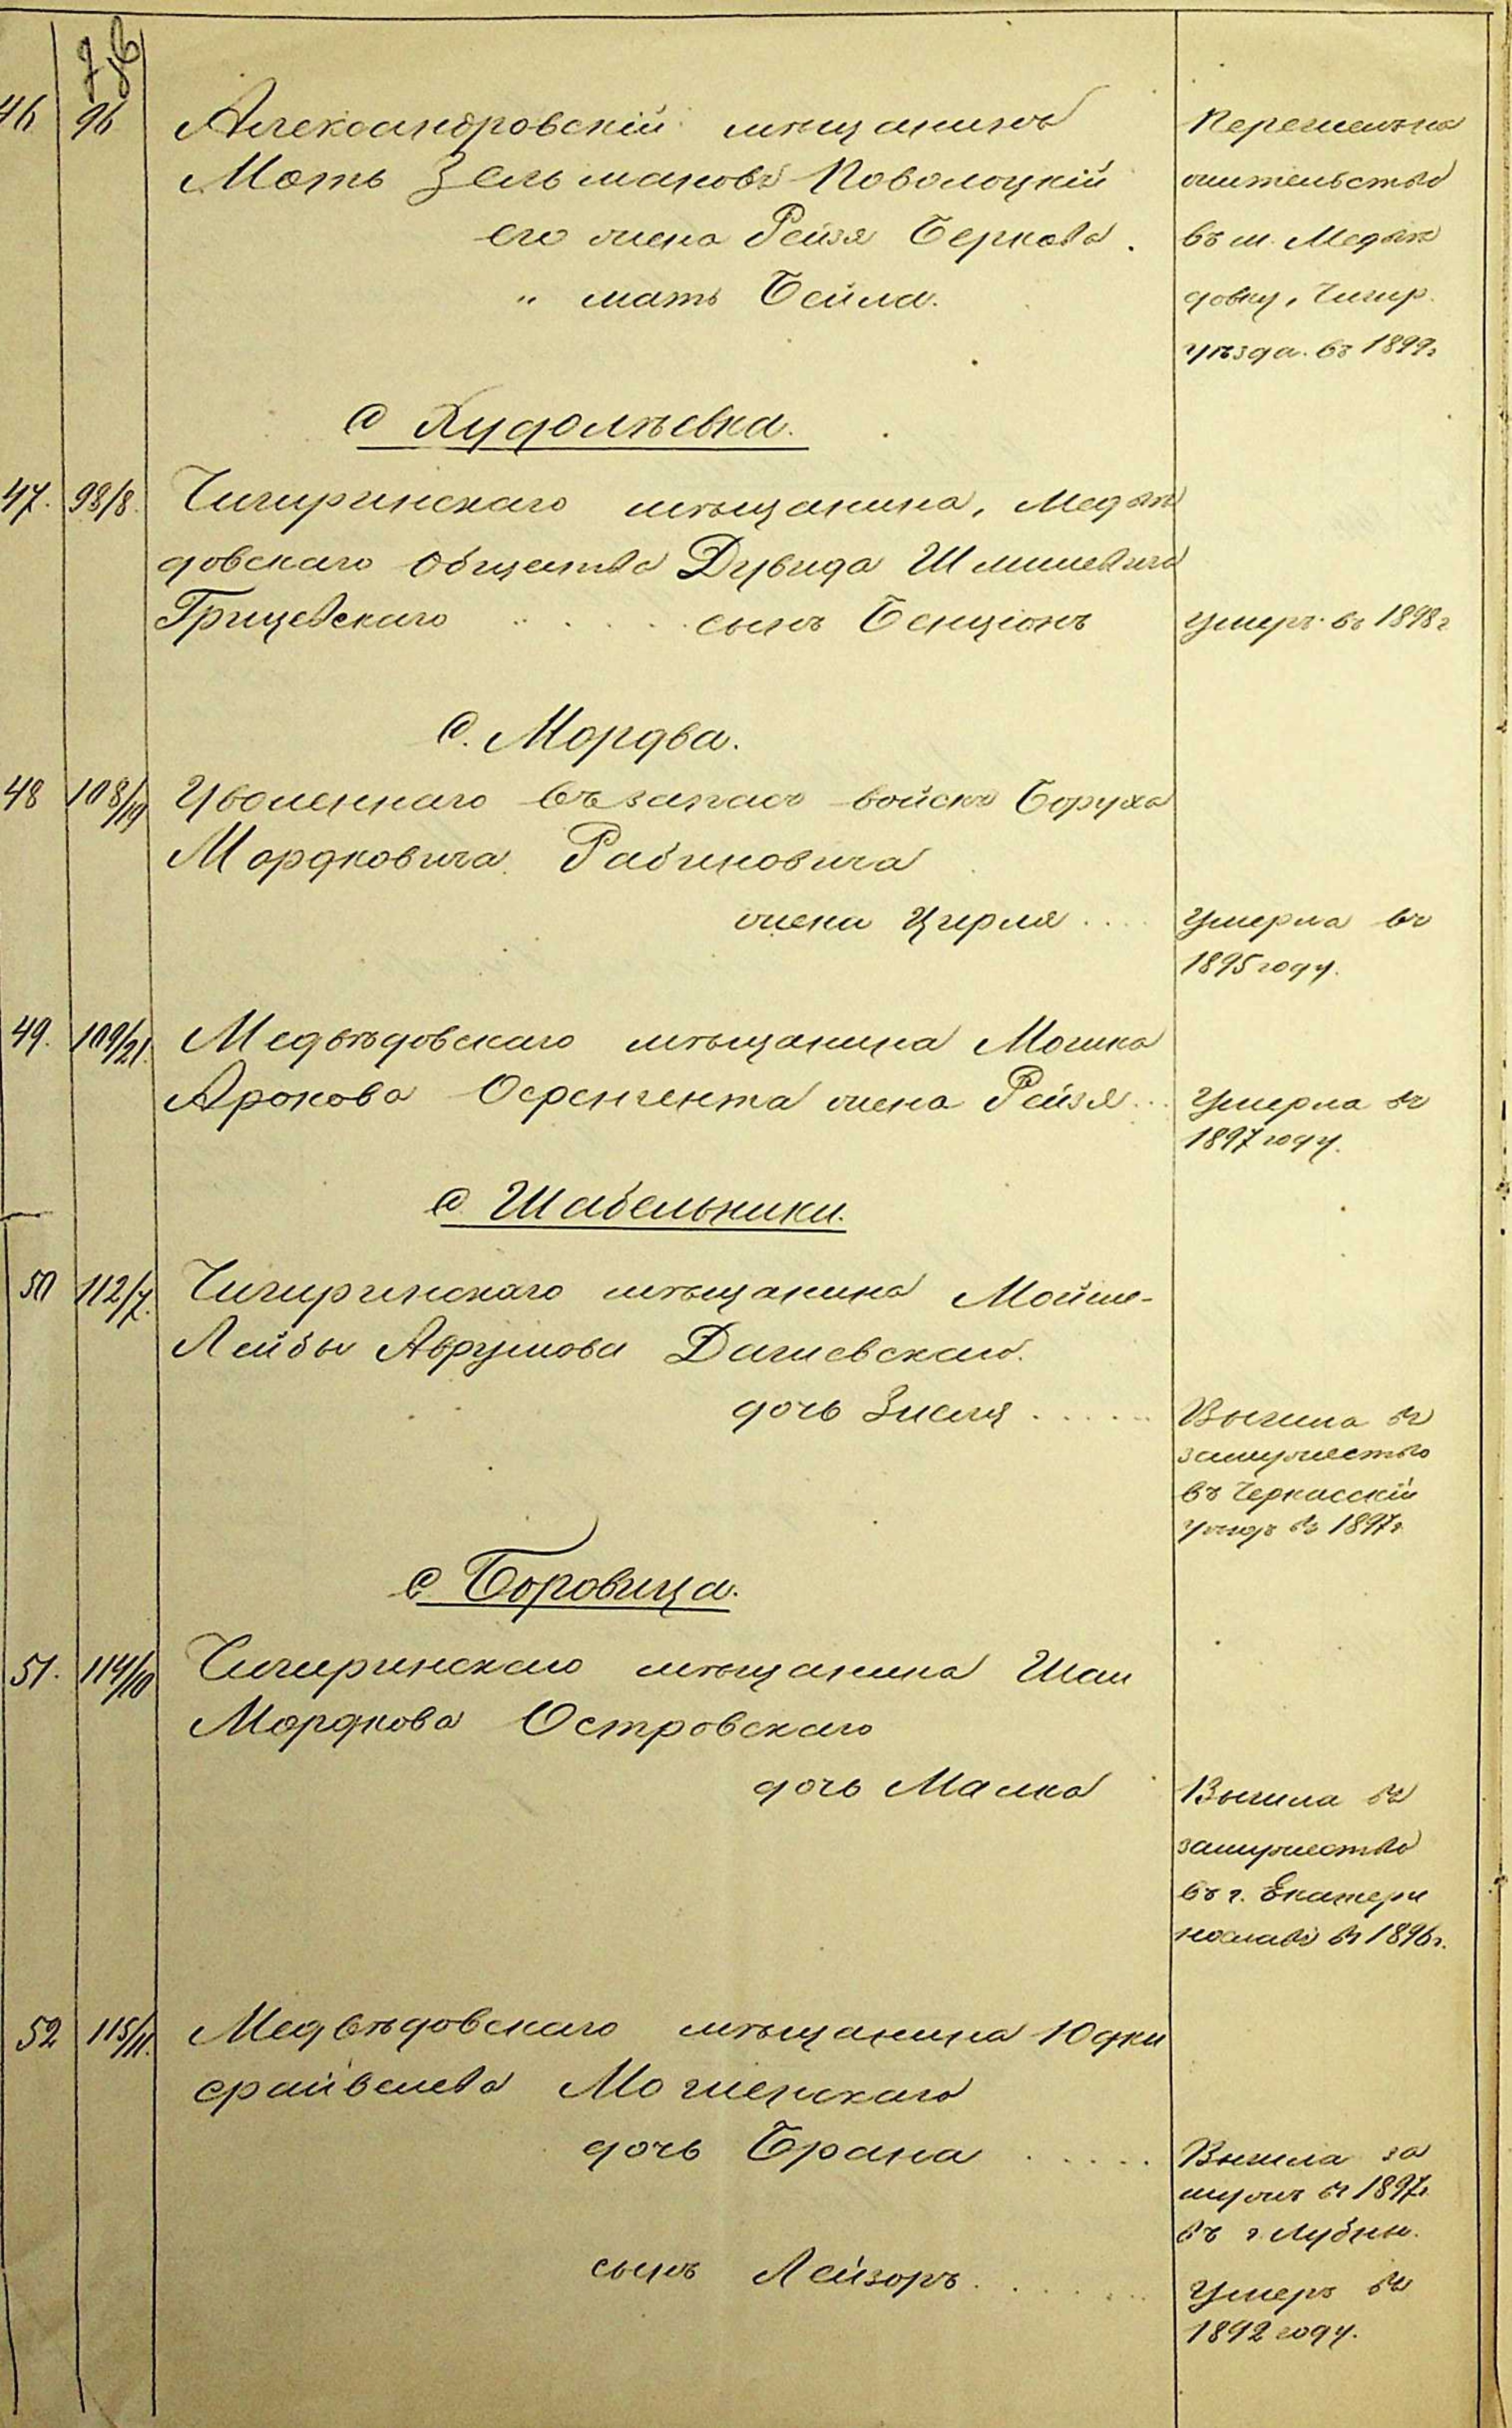 46 96 Александровскій мѣщанинъ Перемѣна
Мотъ Зельмановъ Поволоцкій жительства
его жена Рейзя Беркова. въ м. Медвѣ
" мать Бейла. довку, Чигир.
уѣзда. въ 1899г
с Худолѣевка.
47. 98/8. Чигиринскаго мѣщанина, Медвѣ
довскаго общества Дувида Шлиомовича
Грищевскаго сынъ Бенціонъ умеръ въ 1898г
с. Мордва.
48 108/19 Уволеннаго въ запасъ войскъ Боруха
Мордковича Рабиновича
жена Цирля .... Умерла въ
1895 году.
49. 109/21. Медвѣдовскаго мѣщанина Мошка
Аронова жена Рейзя... Умерла въ
1897 году.
с. Шабельники.
50 112/7. Чигиринскаго мѣщанина Мойше-
Лейбы Аврумова Дашевскаго.
дочь Зисля ...... Вышла въ
замужество
въ Черкасскій
уѣздъ въ 1897г
с. Боровица.
51. 114/10 Чигиринскаго мѣщанина Шаи
Мордкова Островскаго
дочь Малка Вышла въ
замужество
въ г. Екатери
нославъ въ 1896г.
52 115/11. Медвѣдовскаго мѣщанина Юдки
Срайвелева Могиленскаго
дочь Брана ..... Вышла за
мужъ въ 1897г
въ г. Лубны.
сынъ Лейзоръ ...... Умеръ въ
1892 году.